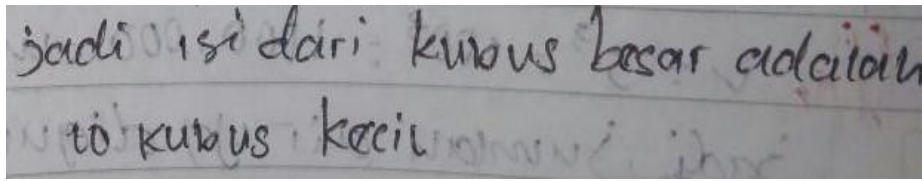 jadi isi dari kubus besar adalah
10 kubus kecil